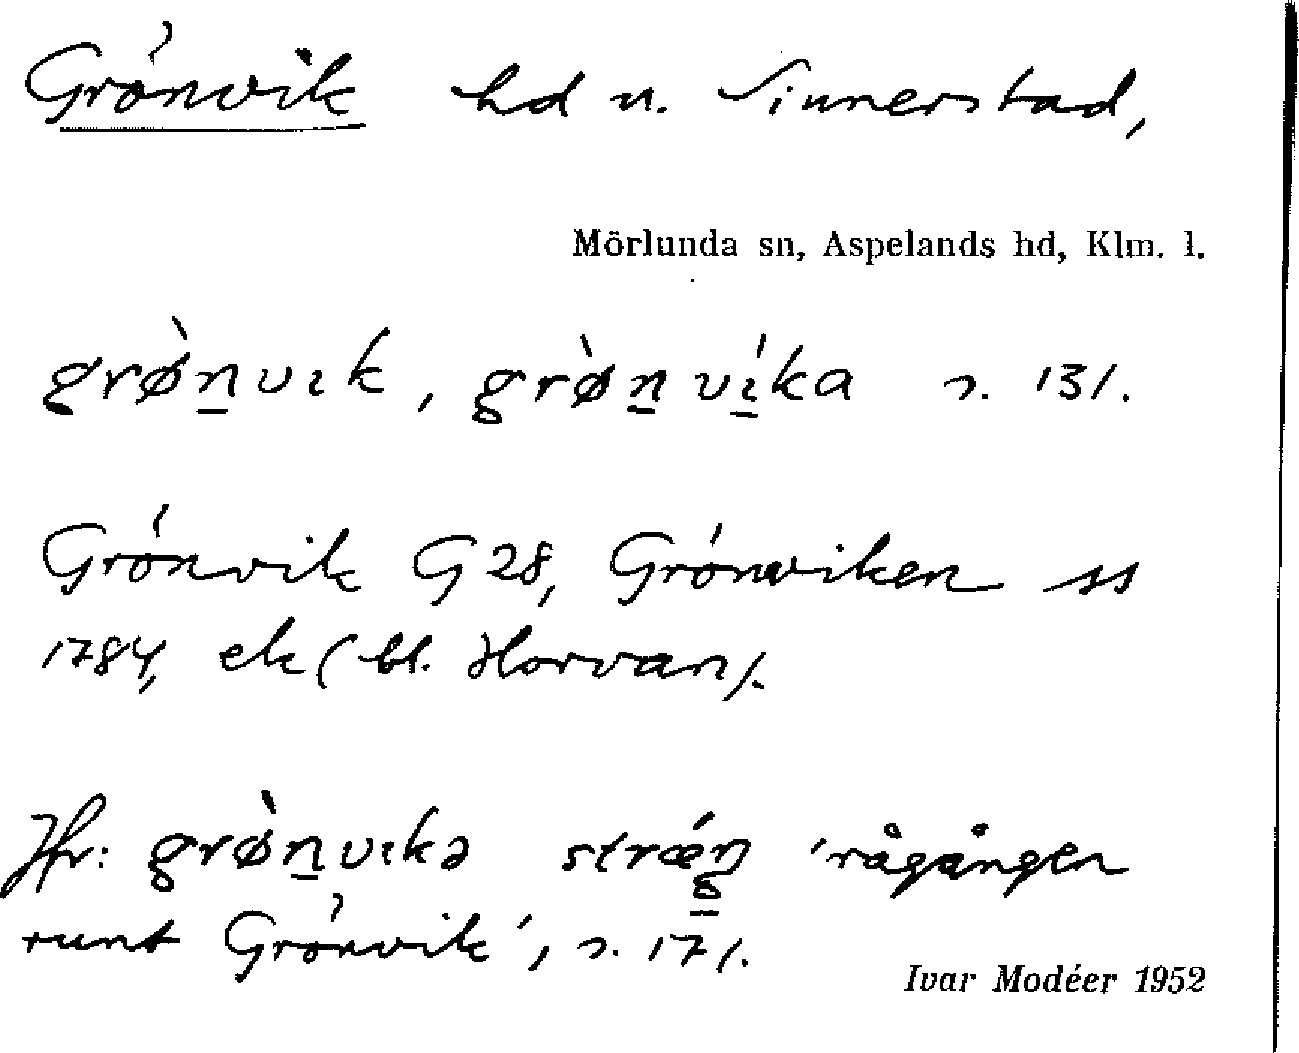 Grönvik hd u. Sinnerstad,
Mörlunda sn, Aspelands hd, Klm. l.
grø̀n̠vɩk, grø̀n̠vɩ̠́ka s. 131.
Grönvik G 28, Grönviken ss
1784, ek (bl. Horvan).
Jfr: grø̀n̠vɩkə strǽŋ̠ 'rågången
runt Grönvik', s. 171.
Ivar Modéer 1952